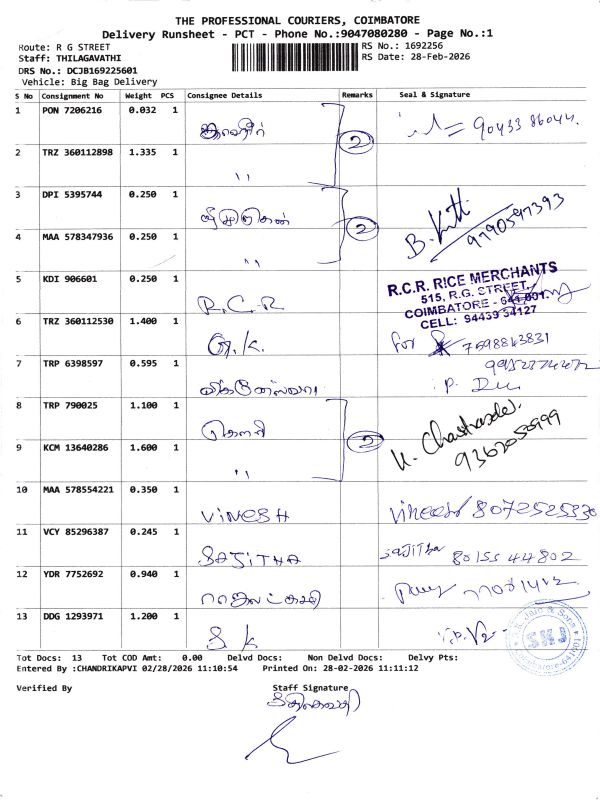 THE PROFESSIONAL COURIERS, COIMBATORE
Delivery Runsheet - PCT - Phone No.:9047080280 - Page No.:1
Route: R G STREET
RS No.: 1692256
Staff: THILAGAVATHI
RS Date: 28-Feb-2026
DRS No.: DCJB169225601
Vehicle: Big Bag Delivery
S No Consignment No Weight PCS Consignee Details Remarks Seal & Signature
1 PON 7206216 0.032 1 2 90433 86044.
2 TRZ 360112898 1.335 1 ''
3 DPI 5395744 0.250 1 2 9790597393
4 MAA 578347936 0.250 1 ''
5 KDI 906601 0.250 1 R.C.R
R.C.R. RICE MERCHANTS
515, R.G. STREET,
COIMBATORE - 641 001.
CELL: 94439 34127
6 TRZ 360112530 1.400 1 G.K. for 7598843831
7 TRP 6398597 0.595 1
8 TRP 790025 1.100 1 கௌரி 2
9 KCM 13640286 1.600 1 ''
10 MAA 578554221 0.350 1 VINESH 8072525330
11 VCY 85296387 0.245 1 SAJITHA Sajitha 80155 44802
12 YDR 7752692 0.940 1 ராஜலட்சுமி
13 DDG 1293971 1.200 1 S K
S.K. Jain & Sons
SKJ
Coimbatore-641001
Tot Docs: 13 Tot COD Amt: 0.00 Delvd Docs: Non Delvd Docs: Delvy Pts:
Entered By :CHANDRIKAPVI 02/28/2026 11:10:54 Printed On: 28-02-2026 11:11:12
Verified By Staff Signature
திலகவதி